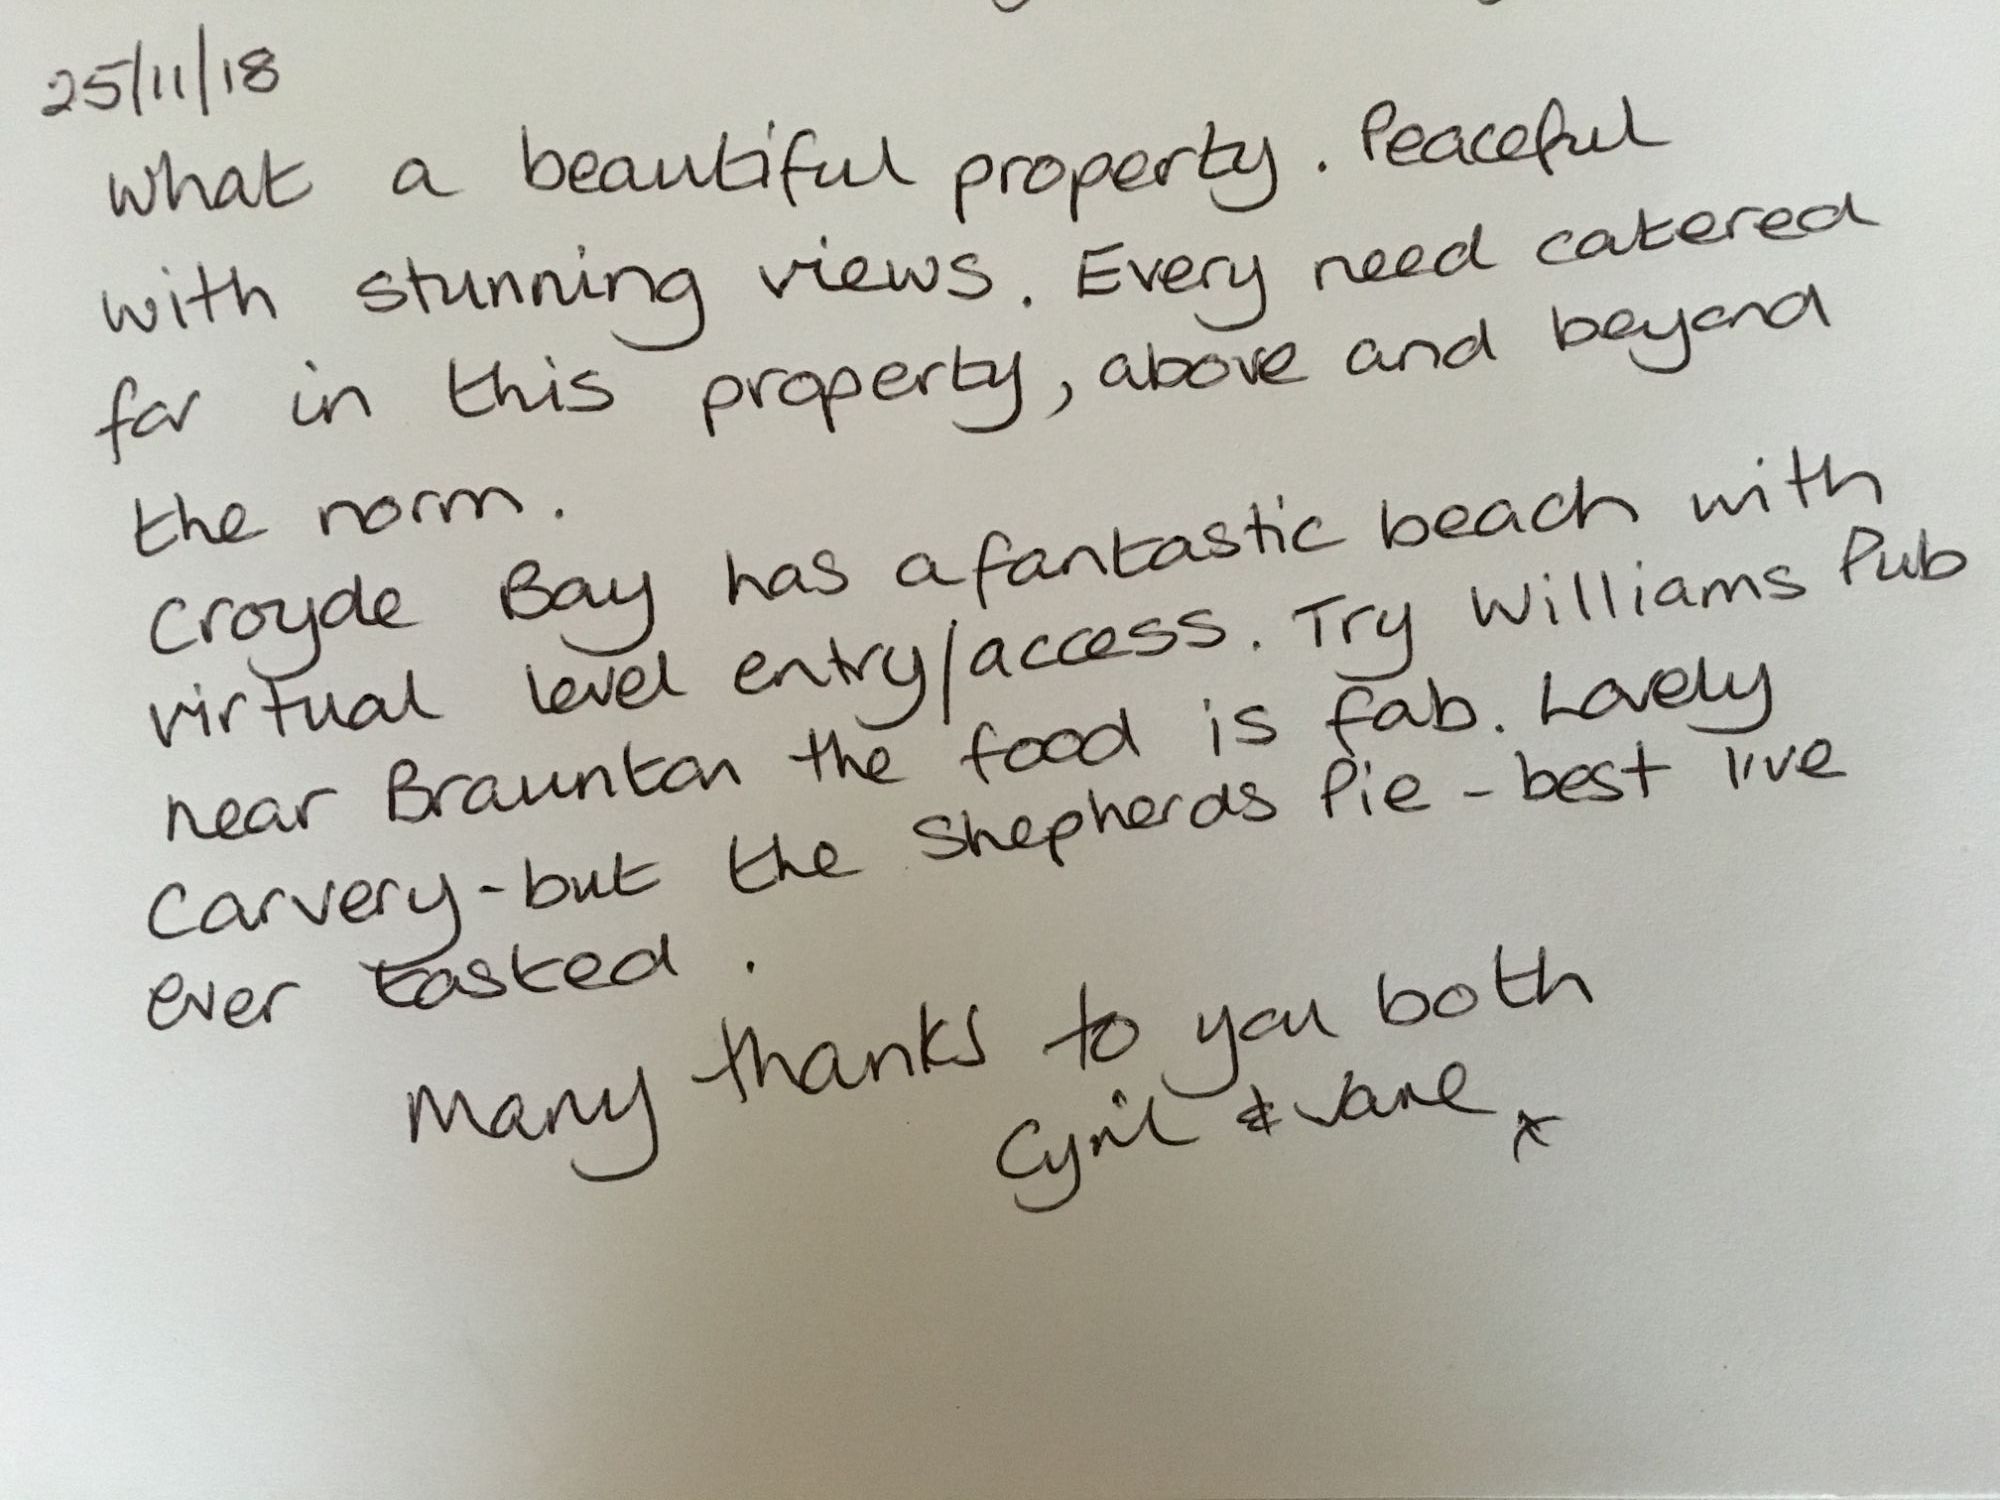 25/11/18
What a beautiful property. Peaceful
with stunning views. Every need catered
for in this property, above and beyond
the norm.
Croyde Bay has a fantastic beach with
virtual level entry/access. Try Williams Pub
near Braunton the food is fab. Lovely
Carvery - but the Shepherds Pie - best I've
ever tasted.
Many thanks to you both
Cyril & Jane x